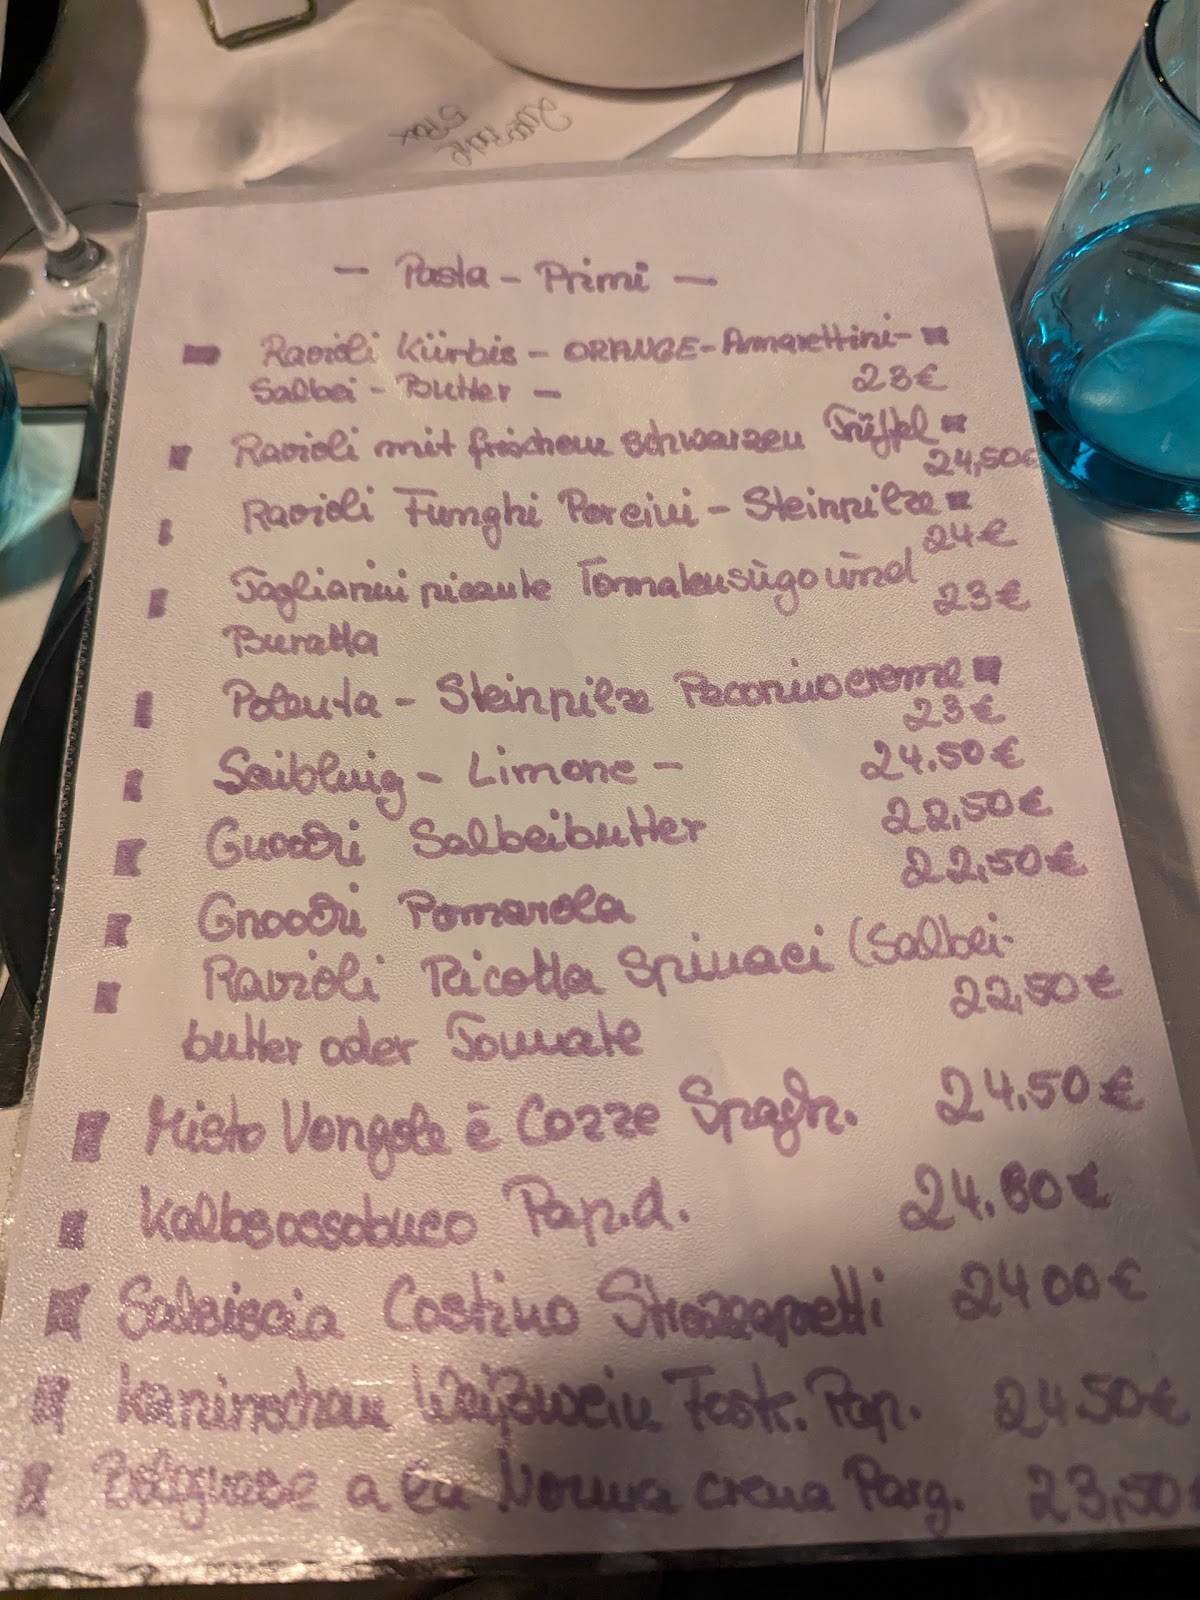 - Pasta - Primi -
Ravioli Kürbis - ORANGE - Amarettini -
Salbei - Butter - 23€
Ravioli mit frischem schwarzen Trüffel
24,50€
Ravioli Funghi Porcini - Steinpilze
24€
Taglianini pizzute Tomatensügo und
Buratta 23€
Polenta - Steinpilze Peconinocreme
23€
Saibling - Limone - 24.50€
Gnocchi Salbeibutter 22,50€
Gnocchi Pomarola 22,50€
Ravioli Ricotta Spinaci (Salbei-
butter oder Tomate 22,50€
Misto Vongole e Cozze Spagh. 24.50€
Kalbsossobuco Pap.d. 24.80€
Salsiccia Costino Strozzapretti 24 00€
Kaninchen Weißwein Pap. 24.50€
Bolognese a la Norma crema Parg. 23,50